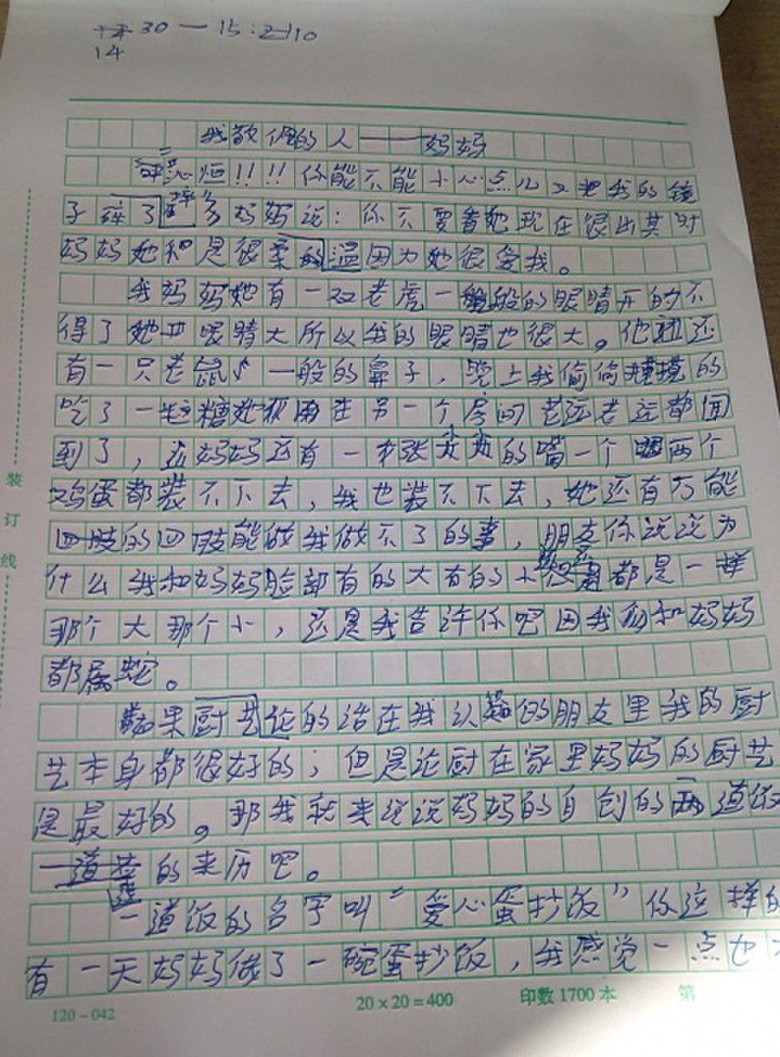 30 — 15:
14
我敬佩的人——妈妈
烦!!!你能不能小心点儿又把我的镜
子碎了 妈妈说:你不要看她现在很凶其时
妈妈她和是很柔的温因为她很爱我。
我妈妈她有一双老虎一般的眼睛开的不
得了她四眼睛大所以我的眼睛也很大。他还
有一只老鼠一般的鼻子,晚上我偷偷摸摸的
吃了一粒糖她在另一个房间老远老远都闻
到了,妈妈还有一张大大的嘴一个两个
鸡蛋都装不下去,我也装不下去,她还有万能
四肢的四肢能做我做不了的事,朋友你说说为
什么我和妈妈脸部有的大有的小都是一样
那个大那个小,还是我告诉你吧因我和妈妈
都属蛇。
如果厨艺论的话在我认的朋友里我的厨
艺本身都很好的;但是论厨在家里妈妈的厨艺
是最好的。那我就来说说妈妈的自创的两道饭
一道菜的来历吧。
一道饭的名字叫"爱心蛋抄饭"你这样的
有一天妈妈做了一碗蛋抄饭,我感觉一点也
装订线
120-042
20×20=400
印数1700本
第